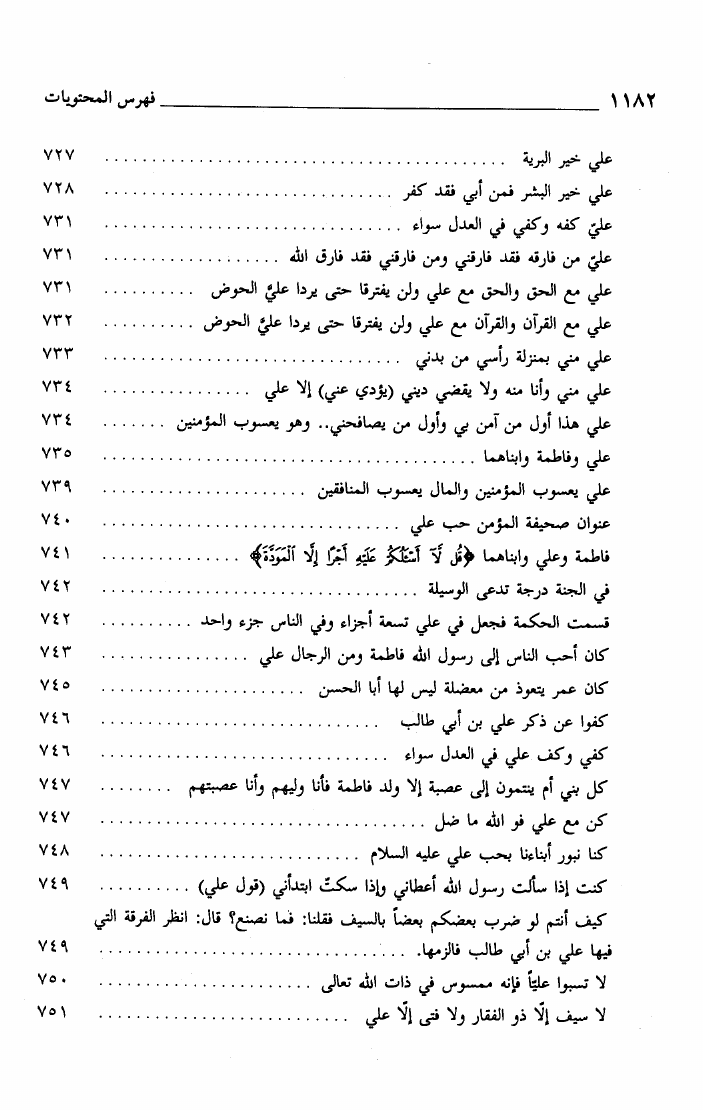 ١١٨٢ فهرس المحتويات
علي خير البرية ........ ٧٢٧
علي خير البشر فمن أبي فقد كفر ........ ٧٢٨
عليّ كفه وكفي في العدل سواء ........ ٧٣١
عليّ من فارقه فقد فارقني ومن فارقني فقد فارق الله ........ ٧٣١
علي مع الحق والحق مع علي ولن يفترقا حتى يردا عليَّ الحوض ........ ٧٣١
علي مع القرآن والقرآن مع علي ولن يفترقا حتى يردا عليَّ الحوض ........ ٧٣٢
علي مني بمنزلة رأسي من بدني ........ ٧٣٣
علي مني وأنا منه ولا يقضي ديني (يؤدي عني) إلا علي ........ ٧٣٤
علي هذا أول من آمن بي وأول من يصافحني.. وهو يعسوب المؤمنين ........ ٧٣٤
علي وفاطمة وابناهما ........ ٧٣٥
علي يعسوب المؤمنين والمال يعسوب المنافقين ........ ٧٣٩
عنوان صحيفة المؤمن حب علي ........ ٧٤٠
فاطمة وعلي وابناهما ﴿قُل لَّآ أَسْـَٔلُكُمْ عَلَيْهِ أَجْرًا إِلَّا ٱلْمَوَدَّةَ﴾ ........ ٧٤١
في الجنة درجة تدعى الوسيلة ........ ٧٤٢
قسمت الحكمة فجعل في علي تسعة أجزاء وفي الناس جزء واحد ........ ٧٤٢
كان أحب الناس إلى رسول الله فاطمة ومن الرجال علي ........ ٧٤٣
كان عمر يتعوذ من معضلة ليس لها أبا الحسن ........ ٧٤٥
كفوا عن ذكر علي بن أبي طالب ........ ٧٤٦
كفي وكف علي في العدل سواء ........ ٧٤٦
كل بني أم ينتمون إلى عصبة إلا ولد فاطمة فأنا وليهم وأنا عصبتهم ........ ٧٤٧
كن مع علي فو الله ما ضل ........ ٧٤٧
كنا نبور أبناءنا بحب علي عليه السلام ........ ٧٤٨
كنت إذا سألت رسول الله أعطاني وإذا سكتّ ابتدأني (قول علي) ........ ٧٤٩
كيف أنتم لو ضرب بعضكم بعضاً بالسيف فقلنا: فما نصنع؟ قال: انظر الفرقة التي
فيها علي بن أبي طالب فالزمها. ........ ٧٤٩
لا تسبوا عليّاً فإنه ممسوس في ذات الله تعالى ........ ٧٥٠
لا سيف إلّا ذو الفقار ولا فتى إلّا علي ........ ٧٥١